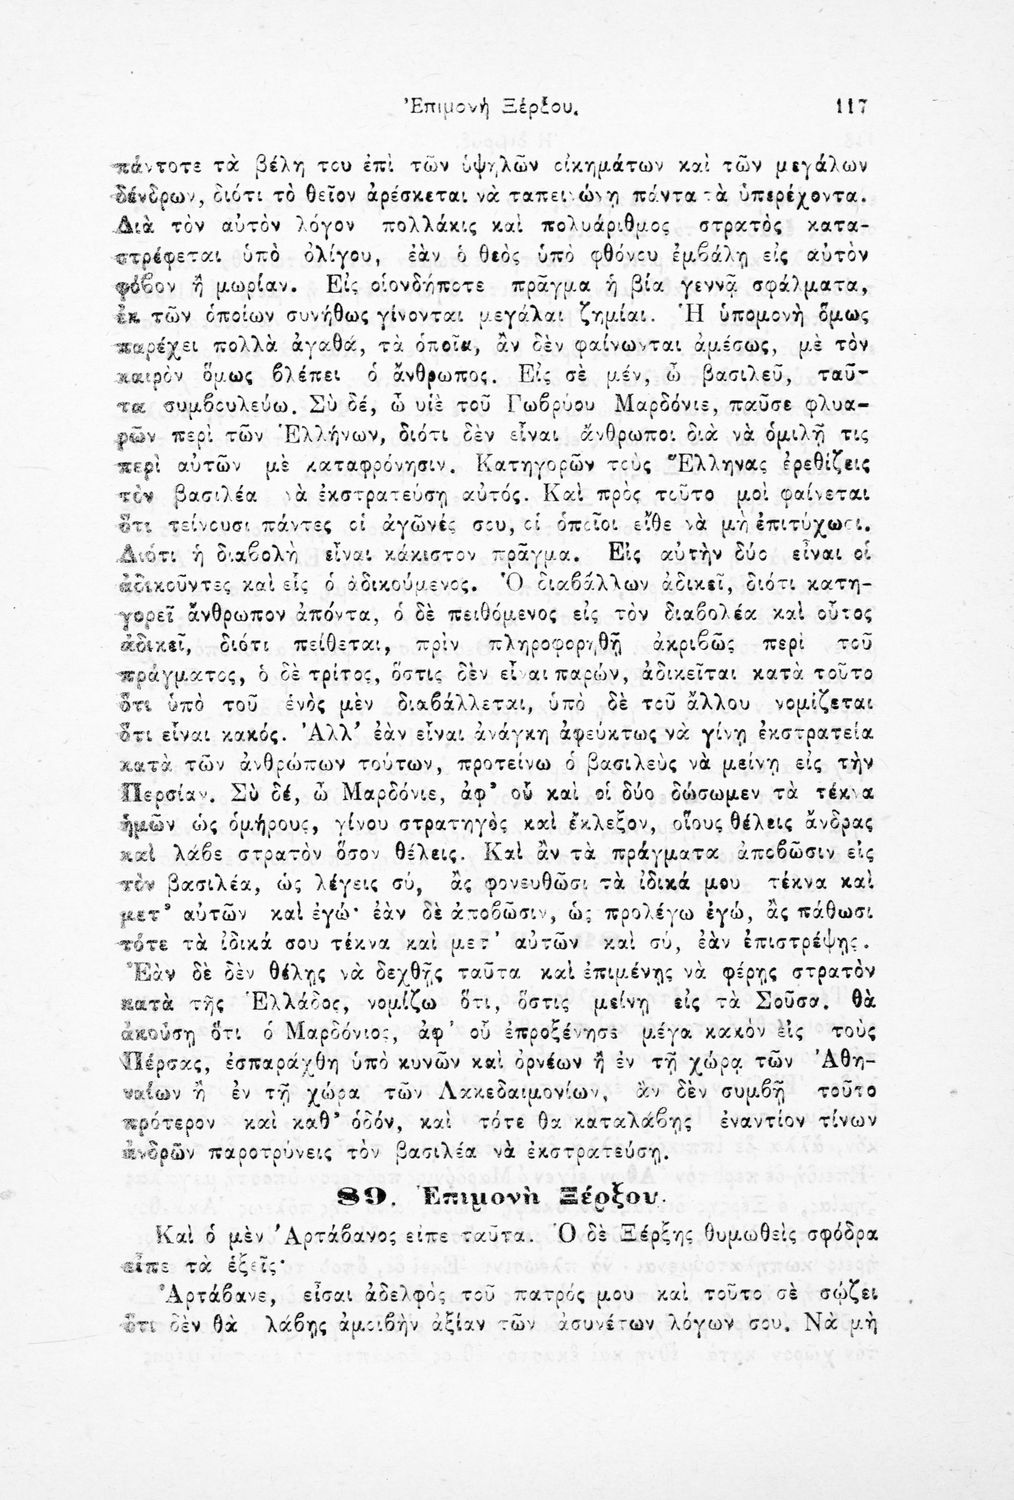 Ἐπιμονὴ Ξέρξου. 117
πάντοτε τὰ βέλη του ἐπὶ τῶν ὑψηλῶν οἰκημάτων καὶ τῶν μεγάλων
δένδρων, διότι τὸ θεῖον ἀρέσκεται νὰ ταπεινώνῃ πάντα τὰ ὑπερέχοντα.
Διὰ τὸν αὐτὸν λόγον πολλάκις καὶ πολυάριθμος στρατὸς κατα-
στρέφεται ὑπὸ ὀλίγου, ἐὰν ὁ θεὸς ὑπὸ φθόνου ἐμβάλῃ εἰς αὐτὸν
φόβον ἢ μωρίαν. Εἰς οἱονδήποτε πρᾶγμα ἡ βία γεννᾷ σφάλματα,
ἐκ τῶν ὁποίων συνήθως γίνονται μεγάλαι ζημίαι. Ἡ ὑπομονὴ ὅμως
παρέχει πολλὰ ἀγαθά, τὰ ὁποῖα, ἂν δὲν φαίνωνται ἀμέσως, μὲ τὸν
καιρὸν ὅμως βλέπει ὁ ἄνθρωπος. Εἰς σὲ μέν, ὦ βασιλεῦ, ταῦ-
τα συμβουλεύω. Σὺ δέ, ὦ υἱὲ τοῦ Γωβρύου Μαρδόνιε, παῦσε φλυα-
ρῶν περὶ τῶν Ἑλλήνων, διότι δὲν εἶναι ἄνθρωποι διὰ νὰ ὁμιλῇ τις
περὶ αὐτῶν μὲ καταφρόνησιν. Κατηγορῶν τοὺς Ἕλληνας ἐρεθίζεις
τὸν βασιλέα νὰ ἐκστρατεύσῃ αὐτός. Καὶ πρὸς τοῦτο μοὶ φαίνεται
ὅτι τείνουσι πάντες οἱ ἀγῶνές σου, οἱ ὁποῖοι εἴθε νὰ μὴ ἐπιτύχωσι.
Διότι ἡ διαβολὴ εἶναι κάκιστον πρᾶγμα. Εἰς αὐτὴν δύο εἶναι οἱ
ἀδικοῦντες καὶ εἷς ὁ ἀδικούμενος. Ὁ διαβάλλων ἀδικεῖ, διότι κατη-
γορεῖ ἄνθρωπον ἀπόντα, ὁ δὲ πειθόμενος εἰς τὸν διαβολέα καὶ οὗτος
ἀδικεῖ, διότι πείθεται, πρὶν πληροφορηθῇ ἀκριβῶς περὶ τοῦ
πράγματος, ὁ δὲ τρίτος, ὅστις δὲν εἶναι παρών, ἀδικεῖται κατὰ τοῦτο
ὅτι ὑπὸ τοῦ ἑνὸς μὲν διαβάλλεται, ὑπὸ δὲ τοῦ ἄλλου νομίζεται
ὅτι εἶναι κακός. Ἀλλ’ ἐὰν εἶναι ἀνάγκη ἀφεύκτως νὰ γίνῃ ἐκστρατεία
κατὰ τῶν ἀνθρώπων τούτων, προτείνω ὁ βασιλεὺς νὰ μείνῃ εἰς τὴν
Περσίαν. Σὺ δέ, ὦ Μαρδόνιε, ἀφ’ οὗ καὶ οἱ δύο δώσωμεν τὰ τέκνα
ἡμῶν ὡς ὁμήρους, γίνου στρατηγὸς καὶ ἔκλεξον, οἵους θέλεις ἄνδρας
καὶ λάβε στρατὸν ὅσον θέλεις. Καὶ ἂν τὰ πράγματα ἀποβῶσιν εἰς
τὸν βασιλέα, ὡς λέγεις σύ, ἂς φονευθῶσι τὰ ἰδικά μου τέκνα καὶ
μετ’ αὐτῶν καὶ ἐγώ· ἐὰν δὲ ἀποβῶσιν, ὡς προλέγω ἐγώ, ἂς πάθωσι
τότε τὰ ἰδικά σου τέκνα καὶ μετ’ αὐτῶν καὶ σύ, ἐὰν ἐπιστρέψῃς.
Ἐὰν δὲ δὲν θέλῃς νὰ δεχθῇς ταῦτα καὶ ἐπιμένῃς νὰ φέρῃς στρατὸν
κατὰ τῆς Ἑλλάδος, νομίζω ὅτι, ὅστις μείνῃ εἰς τὰ Σοῦσα. θὰ
ἀκούσῃ ὅτι ὁ Μαρδόνιος, ἀφ’ οὗ ἐπροξένησε μέγα κακὸν εἰς τοὺς
Πέρσας, ἐσπαράχθη ὑπὸ κυνῶν καὶ ὀρνέων ἢ ἐν τῇ χώρᾳ τῶν Ἀθη-
ναίων ἢ ἐν τῇ χώρᾳ τῶν Λακεδαιμονίων, ἂν δὲν συμβῇ τοῦτο
πρότερον καὶ καθ’ ὁδόν, καὶ τότε θα καταλάβῃς ἐναντίον τίνων
ἀνδρῶν παροτρύνεις τὸν βασιλέα νὰ ἐκστρατεύσῃ.
89. Ἐπιμονὴ Ξέρξου.
Καὶ ὁ μὲν Ἀρτάβανος εἶπε ταῦτα. Ὁ δὲ Ξέρξης θυμωθεὶς σφόδρα
εἶπε τὰ ἑξεῖς·
Ἀρτάβανε, εἶσαι ἀδελφὸς τοῦ πατρός μου καὶ τοῦτο σὲ σῴζει
ὅτι δὲν θὰ λάβῃς ἀμοιβὴν ἀξίαν τῶν ἀσυνέτων λόγων σου. Νὰ μὴ